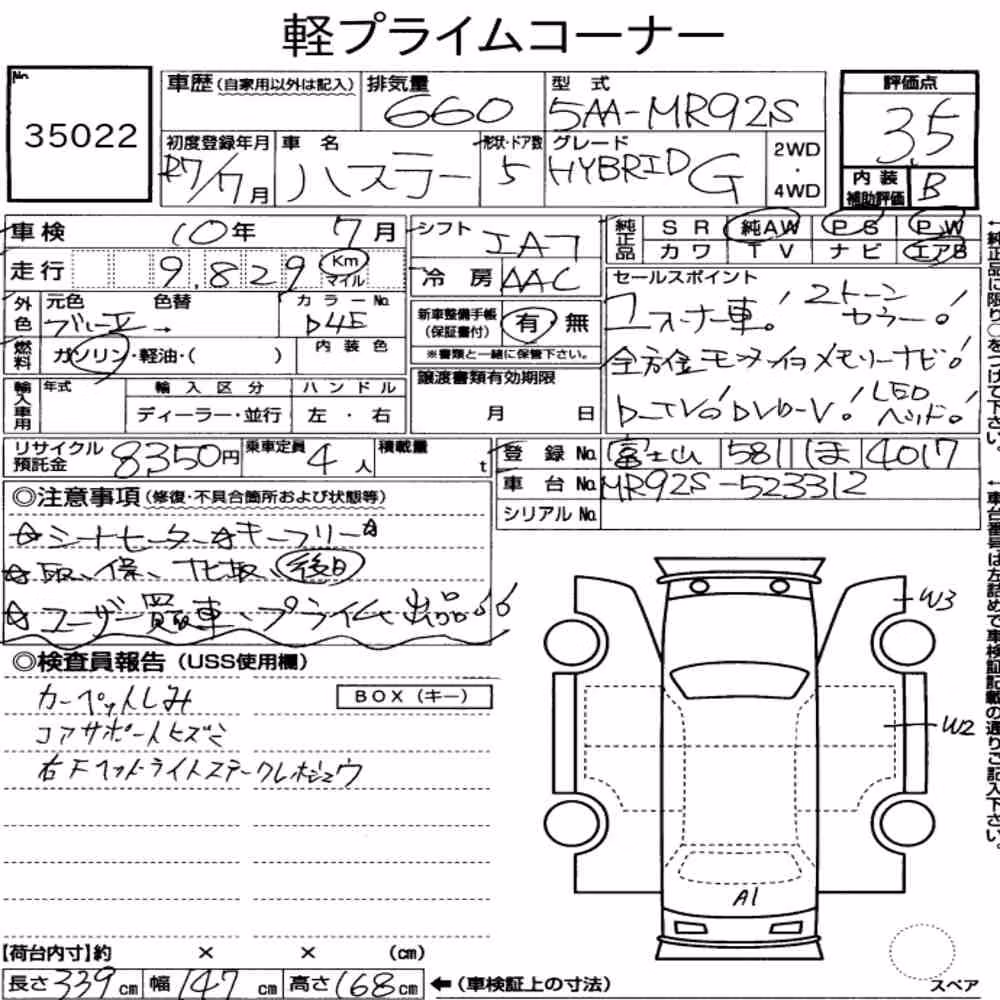 軽プライムコーナー
No.
35022
車歴(自家用以外は記入)
排気量
660
型式
5AA-MR92S
評価点
3.5
初度登録年月
R7/7月
車名
ハスラー
形状・ドア数
5
グレード
HYBRID G
2WD
・
4WD
内装
補助評価
B
車検
10年 7月
走行
9,829
Km
マイル
外色
元色
色替
ブルーⅡ→
カラーNo.
D4E
燃料
ガソリン・軽油・( )
内装色
輸入車用
年式
輸入区分
ハンドル
ディーラー・並行
左・右
シフト
冷房
AAC
新車整備手帳
(保証書付)
有・無
※書類と一緒に保管下さい。
譲渡書類有効期限
月 日
純正品
SR 純AW PS PW
カワ TV ナビ エアB
セールスポイント
ユーザー車! 2トーンカラー!
全方位モニター付メモリーナビ!
D-TV! DVD-V! LEDヘッド!
←純正品に限り○をつけて下さい。
リサイクル
預託金
8350円
乗車定員
4人
積載量
t
登録No.
富士山 581 ほ 4017
車台No.
MR92S-523312
シリアルNo.
←車台番号は左詰めで車検証記載の通りご記入下さい。
◎注意事項(修復・不具合箇所および状態等)
☆シートヒーター☆キーフリー☆
☆取、保、ナビ取、後日
☆ユーザー買取車、プライム出品!!
◎検査員報告(USS使用欄)
BOX(キー)
カーペットシミ
コアサポートヒズミ
右Fヘッドライトステークレホシュウ
W3
W2
A1
【荷台内寸】約 × × (cm)
長さ339cm 幅147cm 高さ168cm
←(車検証上の寸法)
スペア